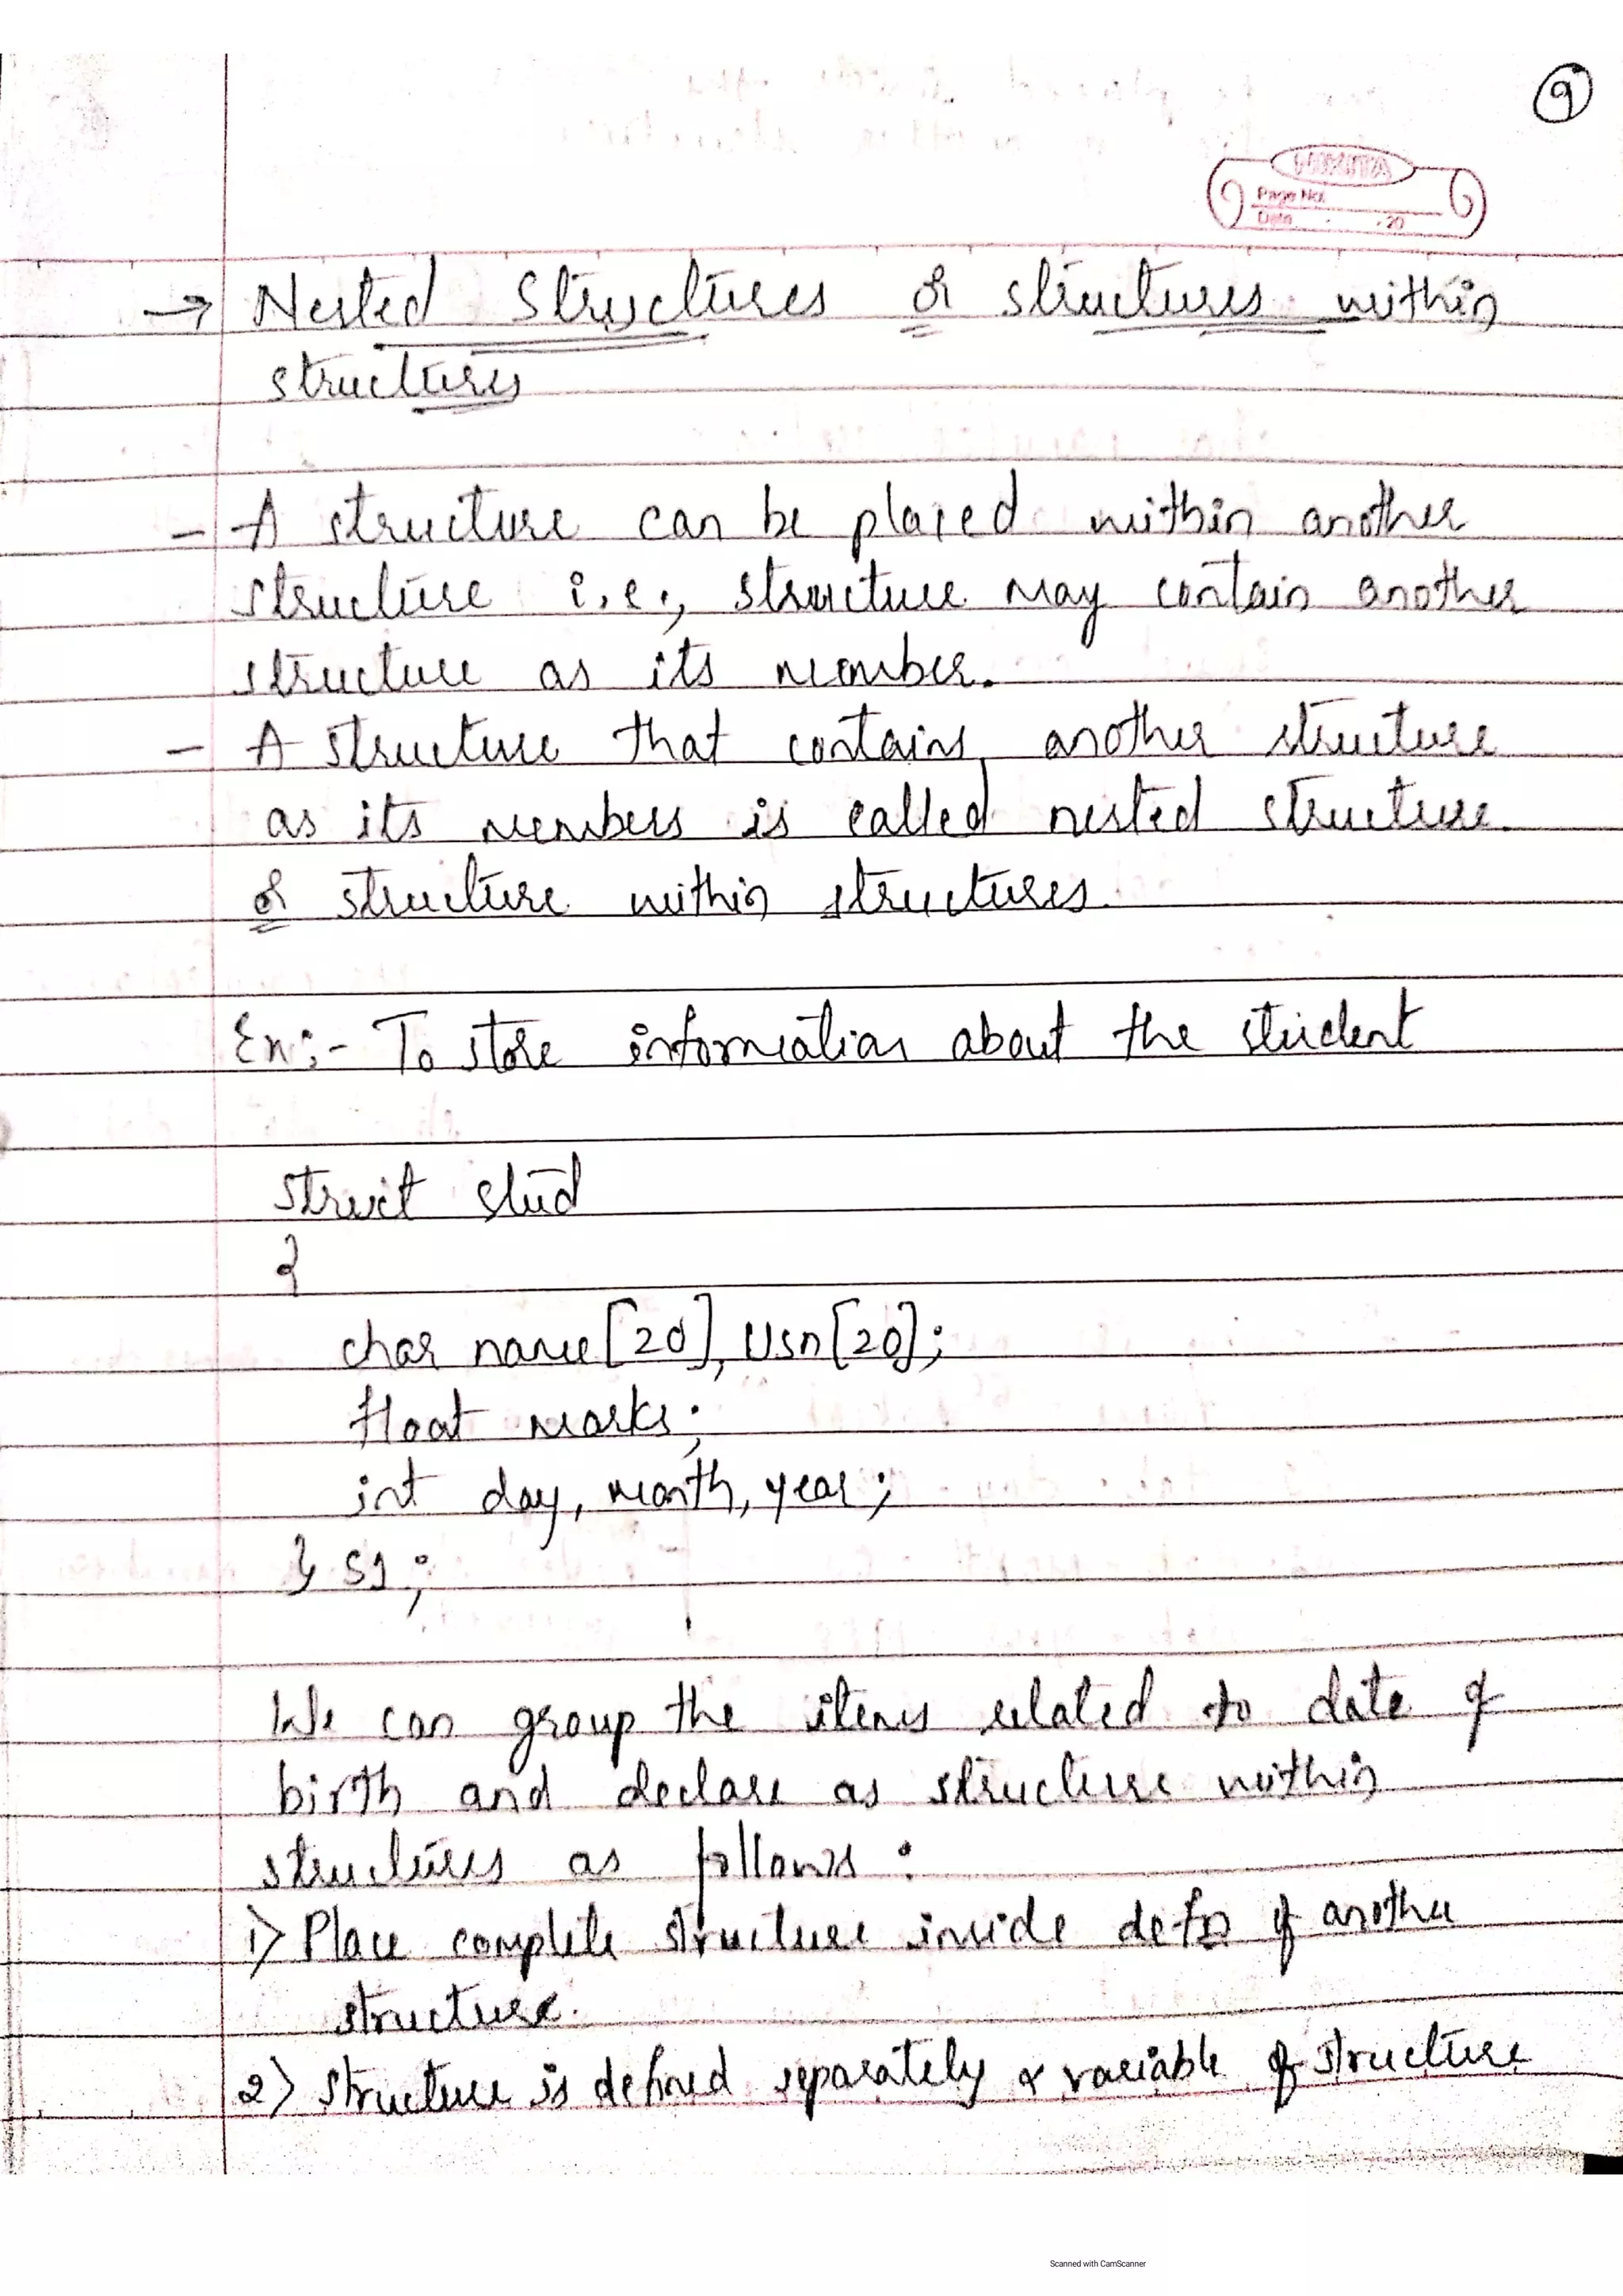 9
NIKITA
Page No.
Date - 20
→ Nested Structures or structures within
structures
- A structure can be placed within another
structure i.e., structure may contain another
structure as its member.
- A structure that contains another structure
as its members is called nested structure
or structure within structures.
Ex:- To store information about the student
struct stud
{
char name[20], Usn[20];
float marks;
int day, month, year;
} S1;
We can group the items related to date of
birth and declare as structure within
structures as follows :
1) Place complete structure inside defn of another
structure.
2) Structure is defined separately & variable of structure
Scanned with CamScanner